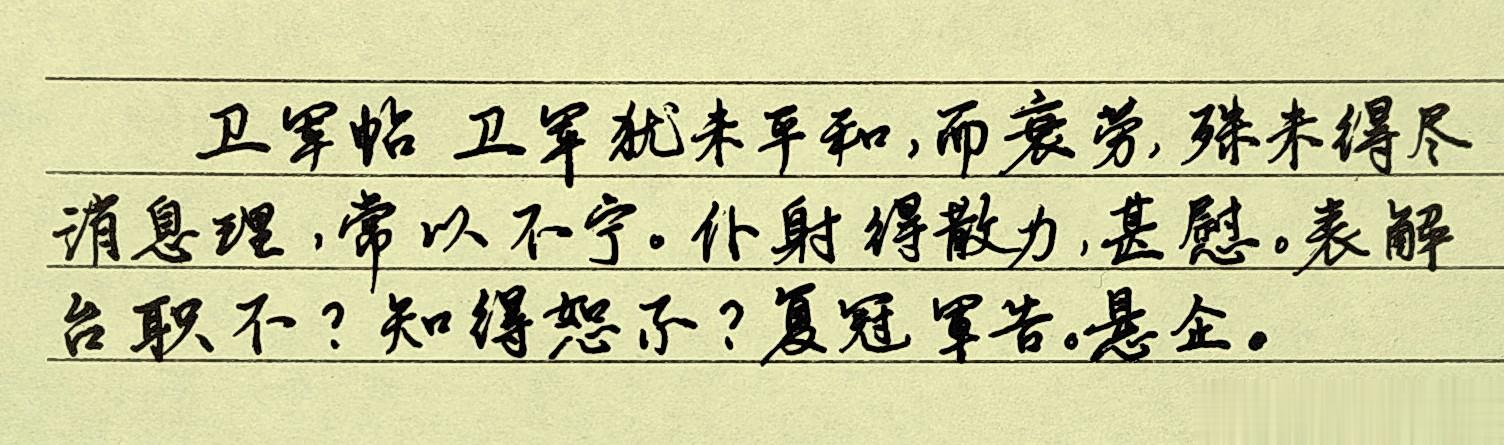 卫军帖 卫军犹未平和,而衰劳,殊未得尽
消息理,常以不宁。仆射得散力,甚慰。表解
台职不?知得恕不?复冠軍告。悬企。